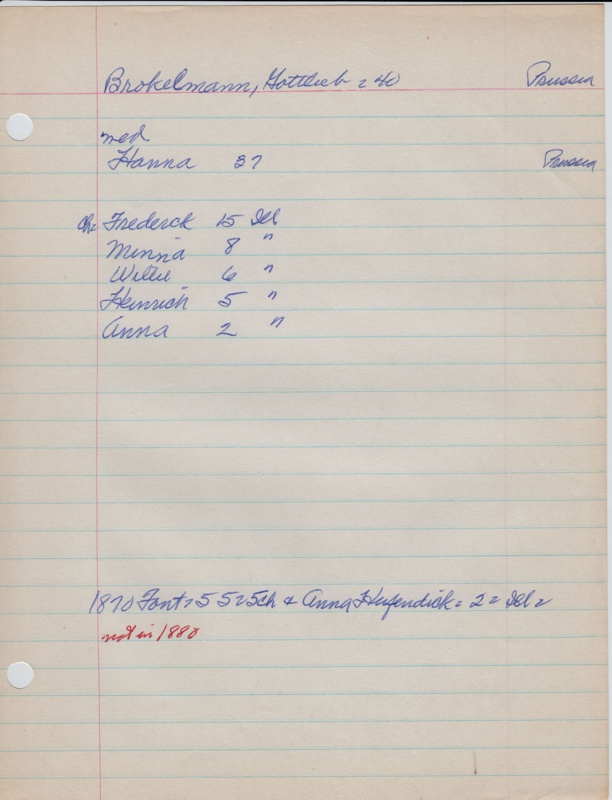 Brokelmann, Gottlieb = 40 Prussia
med
Hanna 37 Prussia
Ch: Frederick 15 Ill
Minna 8 "
Willie 6 "
Heinrich 5 "
Anna 2 "
1870 Font = 55 = 5ch & Anna Hufendick = 2 = Ill =
not in 1880